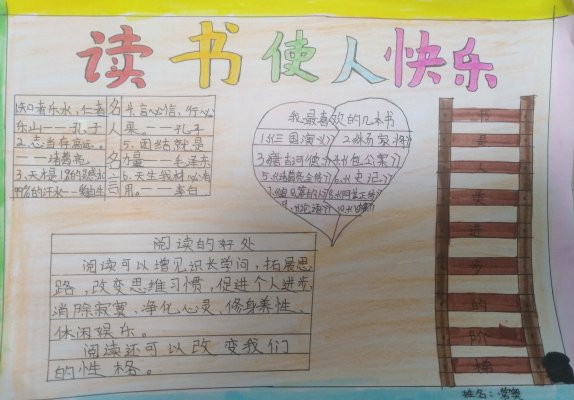 读书使人快乐
1.知者乐水，仁者
乐山——孔子
2.志当存高远。
——诸葛亮
3.天才是1%的灵感加
99%的汗水——
名人名言
4.言必信，行必
果。——孔子
5.团结就是
力量——毛泽东
6.天生我材必有
用。——李白
我最喜欢的几本书
1.《三国演义》2.《杨家将》
4.《包公案》
5.《诸葛亮全传》6.《史记》
阅读的好处
阅读可以增见识长学问，拓展思
路，改变思维习惯，促进个人进步，
消除寂寞、净化心灵、修身养性、
休闲娱乐。
阅读还可以改变我们
的性格。
书
是
人
类
进
步
的
阶
梯
姓名：